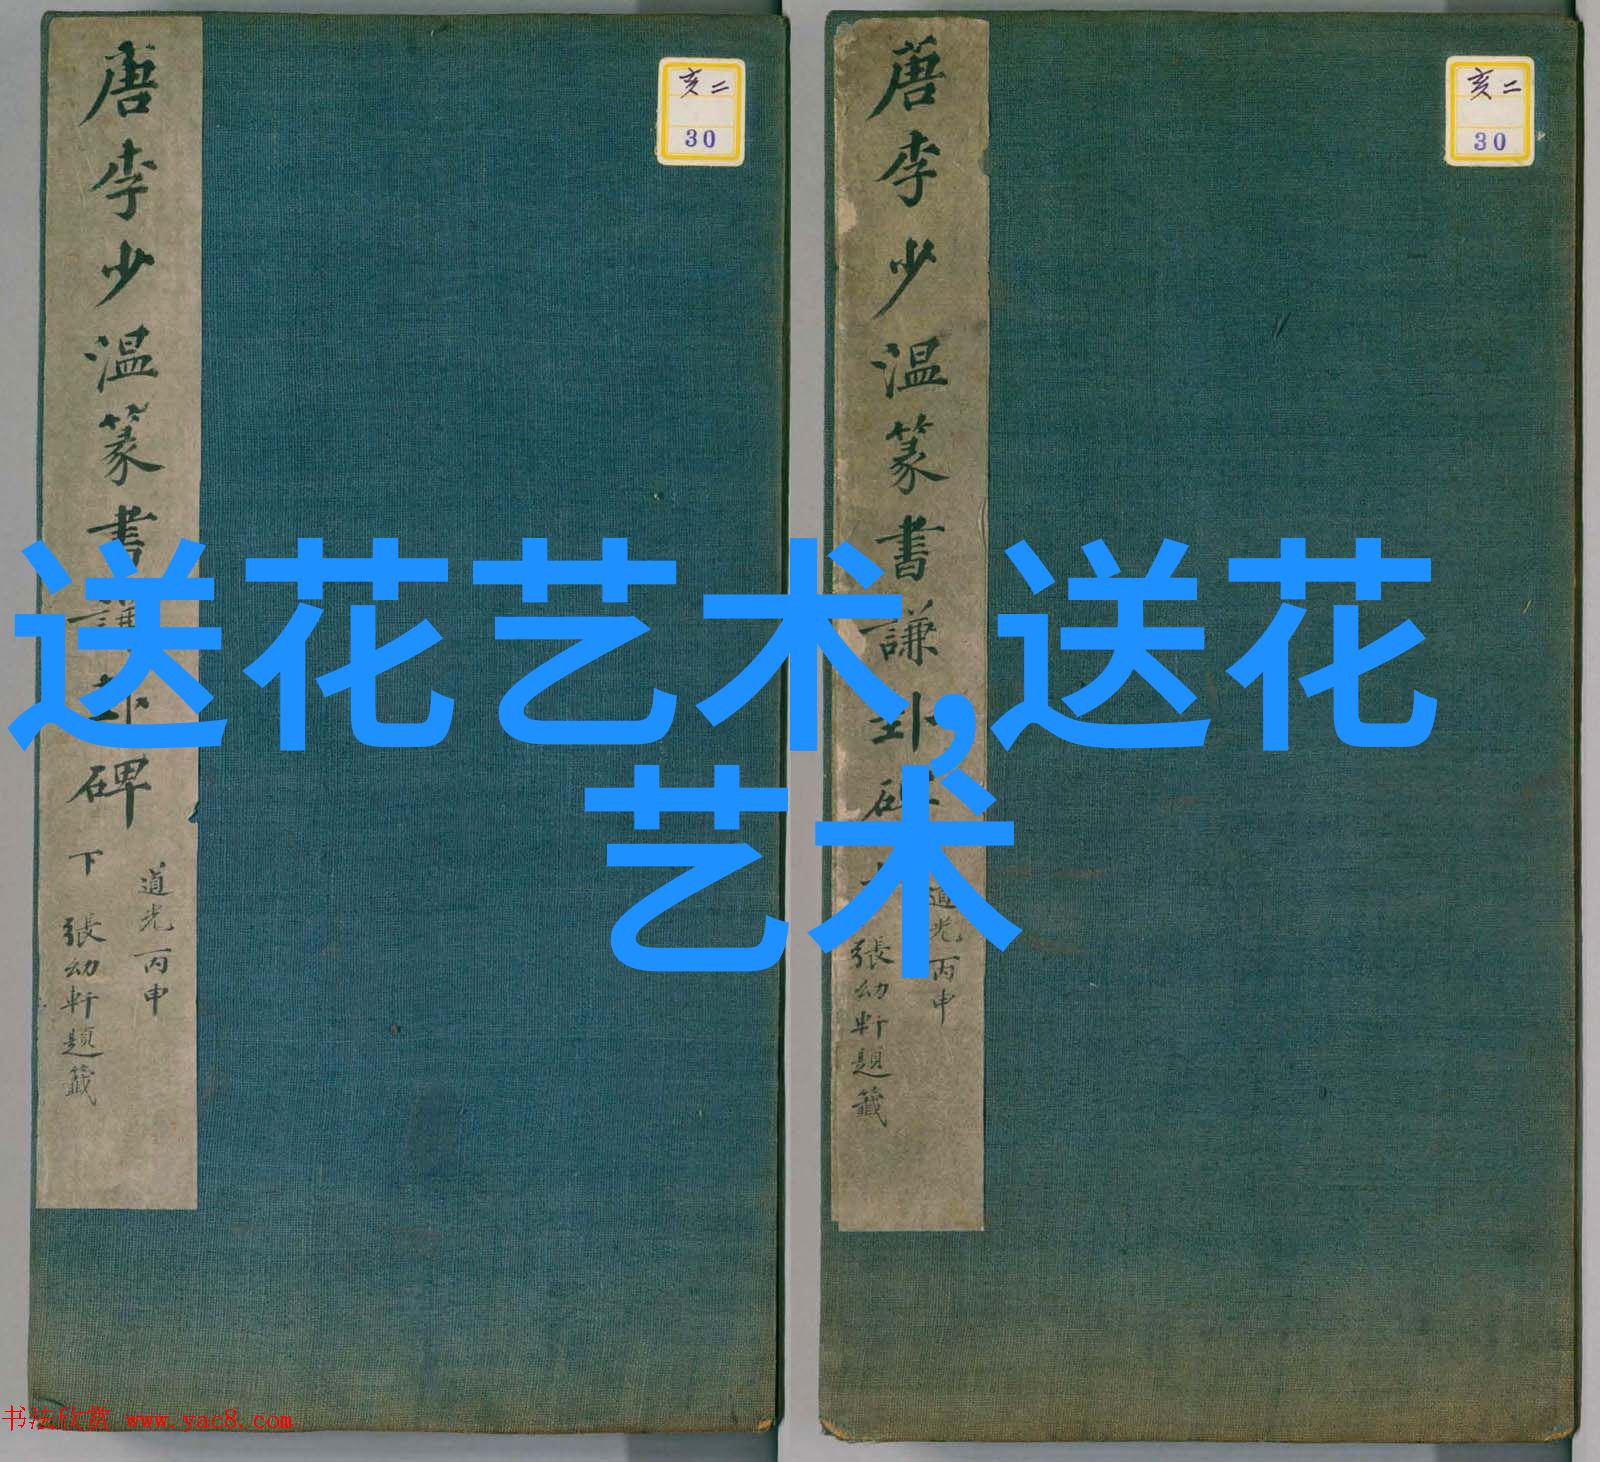 唐李少温篆書謙卦碑
下
道光丙申
張幼軒題籤
亥二
30
唐李少温篆書謙卦碑
道光丙申
張幼軒題籤
亥二
30
送花艺术,送花
艺术
书法欣赏 www.yac8.com